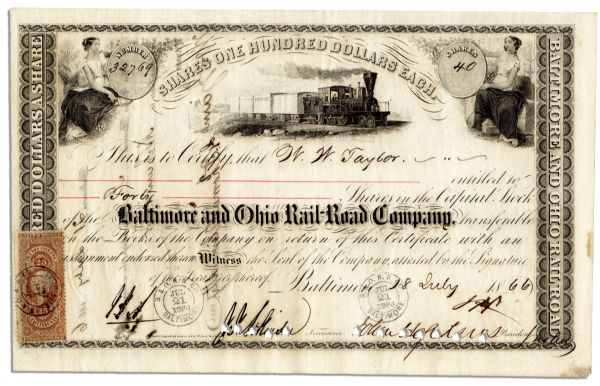 NUMBER
32769
SHARES ONE HUNDRED DOLLARS EACH.
SHARES
40
RED DOLLARS A SHARE
BALTIMORE AND OHIO RAILROAD
This is to Certify, that W. W. Taylor.
entitled to
Forty Shares in the Capital Stock
of the Baltimore and Ohio Rail-Road Company, transferable
on the Books of the Company on return of this Certificate with an
endorsed thereon Witness the Seal of the Company, attested by the Signature
of the Treasurer thereof. Baltimore 18 July 1866
25
25
B. & O. R. R.
JUL
21
BALTIMORE
B. & O. R. R.
JUL
21
BALTIMORE
Treasurer
President